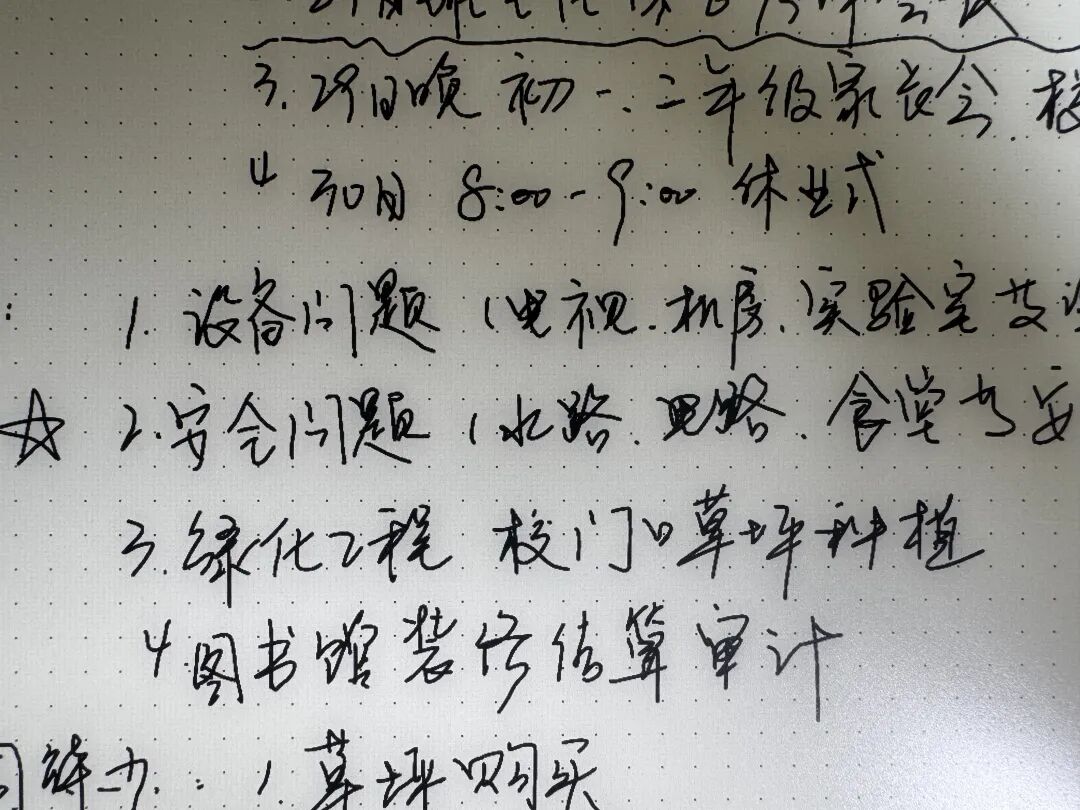 3. 29日晚 初一.二年级家长会. 校
4 30日 8:00-9:00 休业式
: 1. 设备问题 (电视.机房.实验室及
☆ 2.安全问题 (水路.电路.食堂
3.绿化工程 校门口草坪种植
4.图书馆装修结算审计
: 1.草坪购买